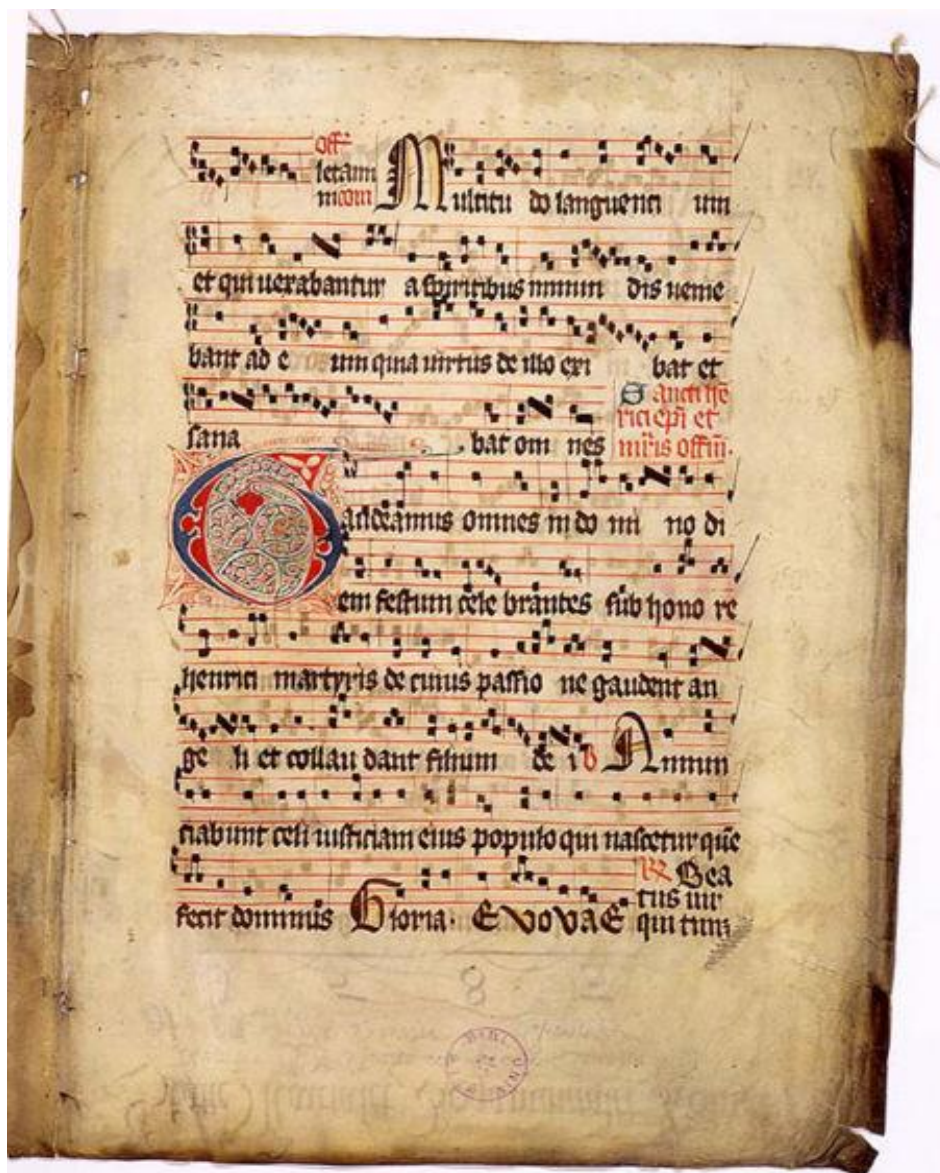 off
letam
m com Multitu do languenti um
et qui uexabantur a spiritibus inmun dis ueni e
bant ad e um quia uirtus de illo exi bat et
sana bat om nes
Sancti he
rici epi et
mris offm.
Gaudeamus omnes in do mi no di
em festum cele brantes sub hono re
henrici martyris de cuius passio ne gaudent an
ge li et collau dant filium de i V Annun
ciabunt celi iusticiam eius populo qui nascetur que
fecit dominus Gloria. EVOVAE
Bea
tus uir
qui timz
8